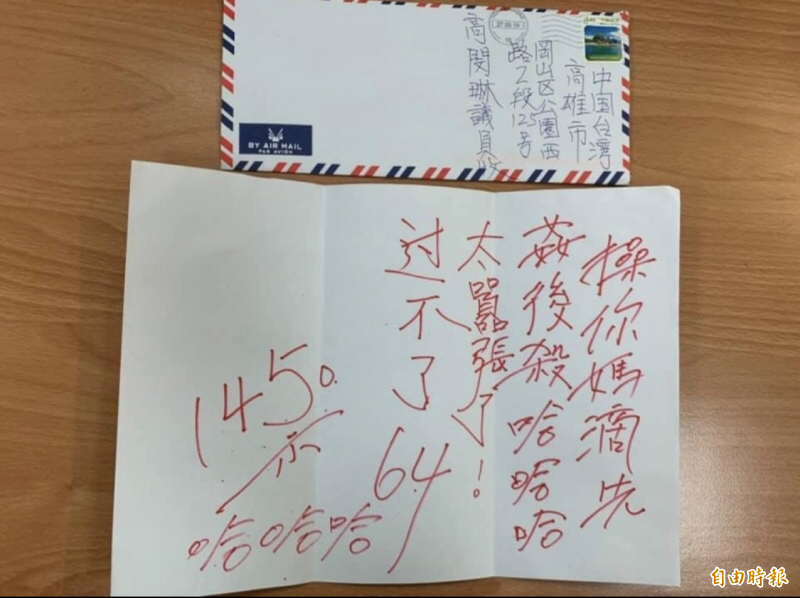 中国台湾
高雄市
岡山区公園西
路2段125号
高閔琳議員收
BY AIR MAIL
PAR AVION
操你媽滴先
姦後殺哈哈哈
太囂張了!
过不了64
1450
示
哈哈哈
自由時報